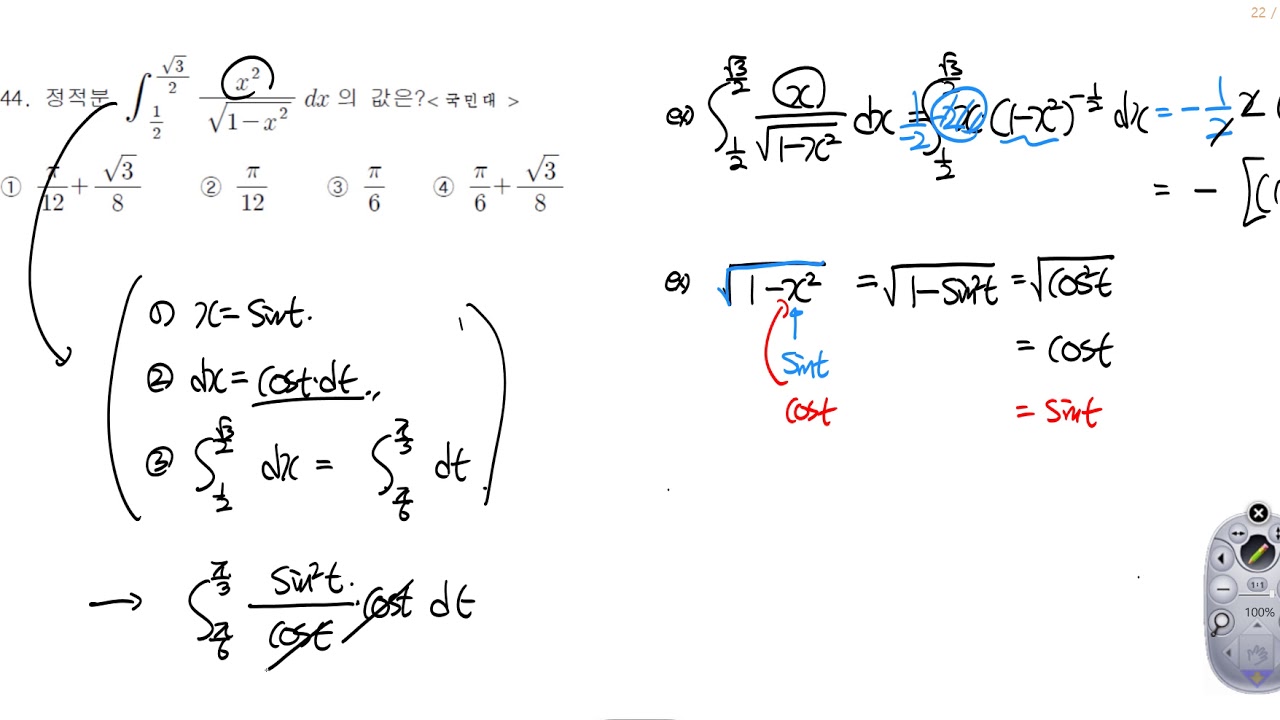 22 /
44. 정적분 ∫_{1/2}^{√3/2} x²/√(1−x²) dx 의 값은?< 국민대 >
① π/12 + √3/8 ② π/12 ③ π/6 ④ π/6 + √3/8
① x = sint.
② dx = cost·dt
③ ∫_{1/2}^{√3/2} dx = ∫_{π/6}^{π/3} dt
→ ∫_{π/6}^{π/3} sin²t/cost · cost dt
ex) ∫_{1/2}^{√3/2} x/√(1−x²) dx = 1/−2 ∫_{1/2}^{√3/2} x (1−x²)^{−1/2} dx = −1/2 2 (
= − [(
ex) √(1−x²) = √(1−sin²t) = √(cos²t)
sint
= cost
cost
= sint
1:1
100%